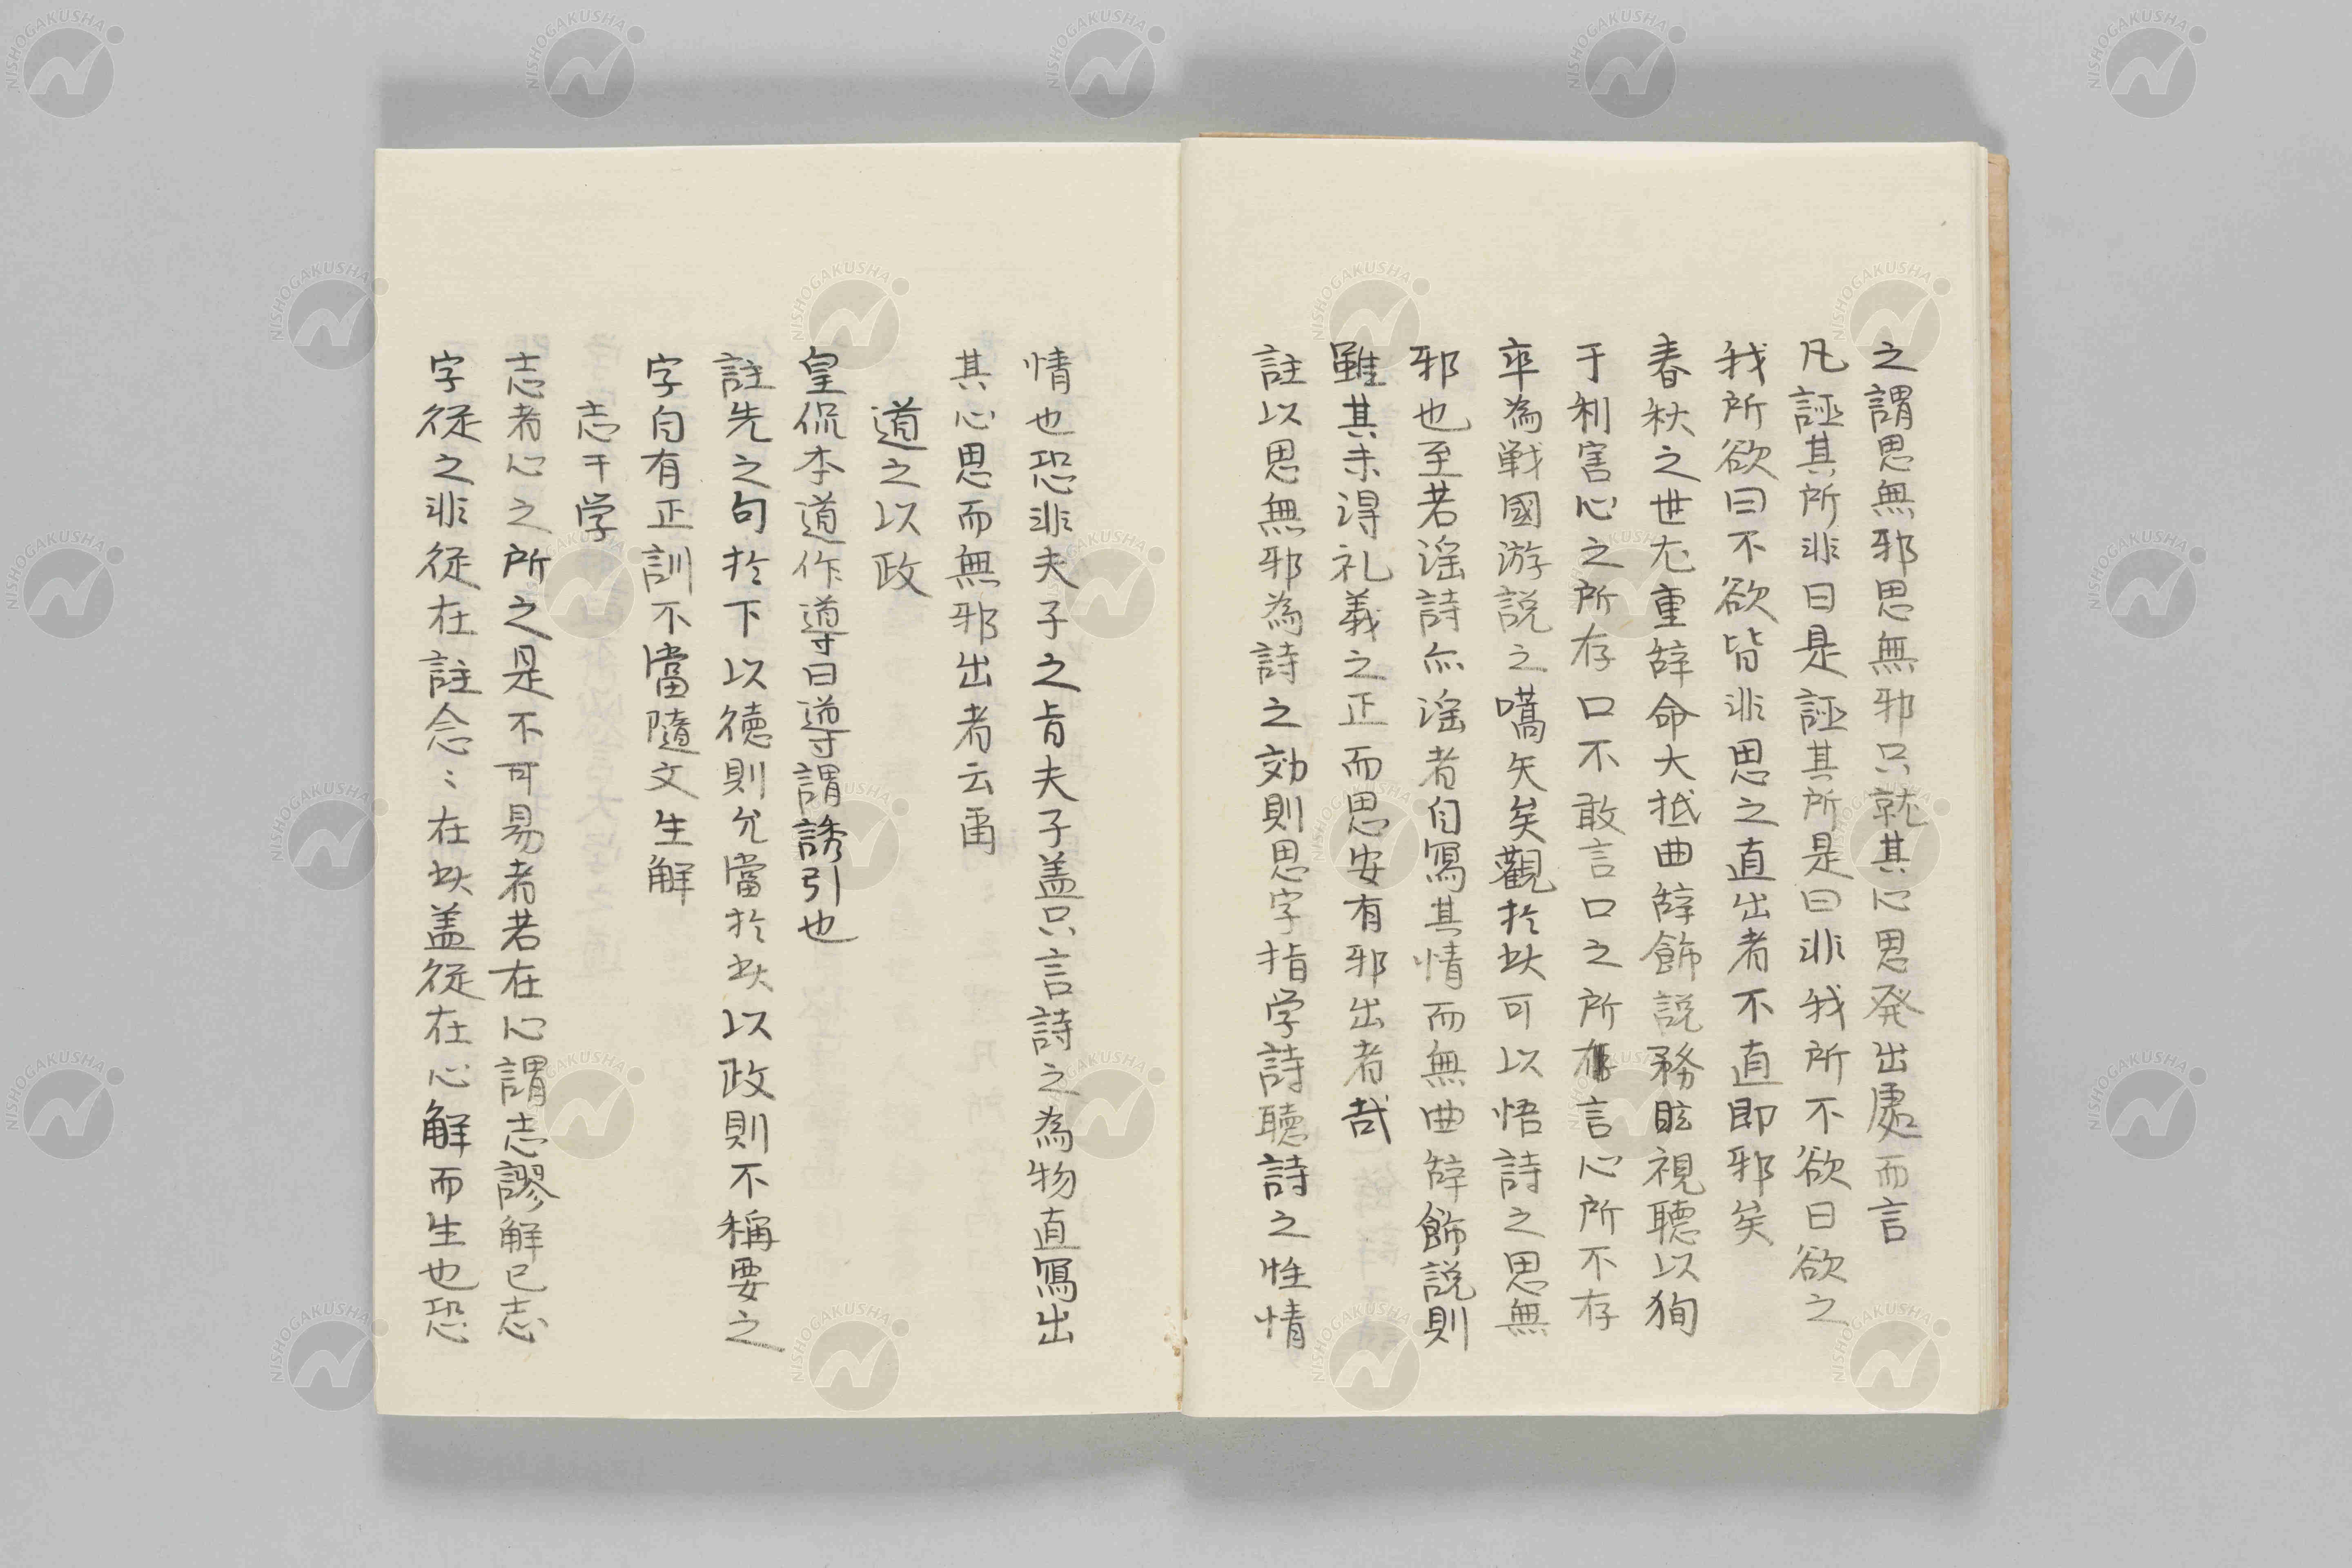 之謂思無邪思無邪只就其心思発出處而言
凡誣其所非曰是誣其所是曰非我所不欲曰欲之
我所欲曰不欲皆非思之直出者不直即邪矣
春秋之世尤重辞命大抵曲辞飾説務眩視聴以狥
于利害心之所存口不敢言口之所言心所不存
卒為戦國游説之嚆矢矣觀於此可以悟詩之思無
邪也至若淫詩亦淫者自写其情而無曲辞飾説則
雖其未得礼義之正而思安有邪出者哉
註以思無邪為詩之効則思字指学詩聴詩之性情
情也恐非夫子之旨夫子盖只言詩之為物直写出
其心思而無邪出者云爾
道之以政
皇侃本道作導曰導謂誘引也
註先之句於下以徳則允當於此以政則不稱要之
字自有正訓不當隨文生解
志于学
志者心之所之是不可易者若在心謂志謬解已志
字従之非従在註念〻在此盖従在心解而生也恐
NISHOGAKUSHA